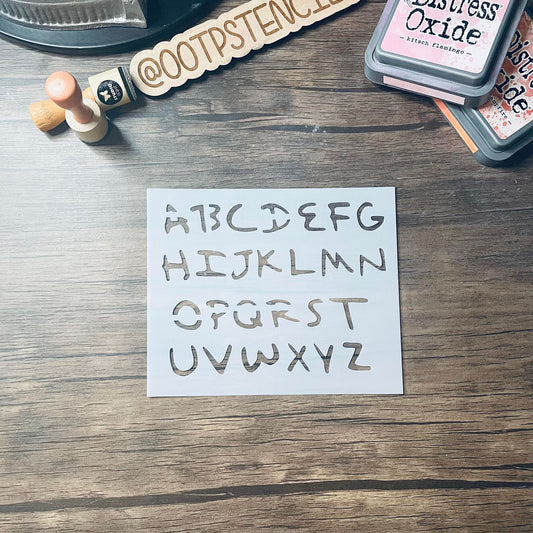 @OOTPSTENCIL
Distress
Oxide
- kitsch flamingo -
Oxide
ABCDEFG
HIJKLMN
OPQRST
UVWXYZ